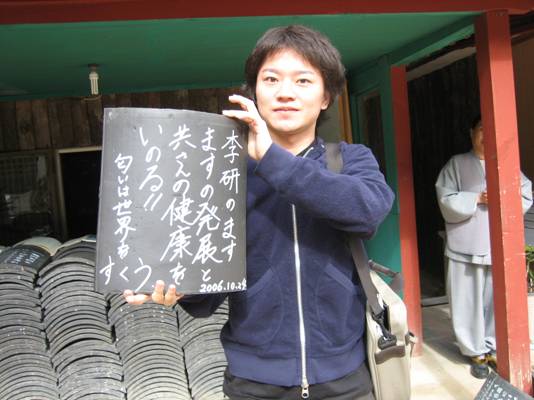 李研のます
ますの発展と
共くんの健康を
いのる!!
匂いは世界を
すくう
2006.10.24